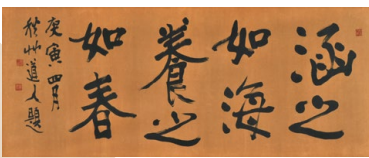 涵之
如海
養之
如春
庚寅四月
秋艸道人題